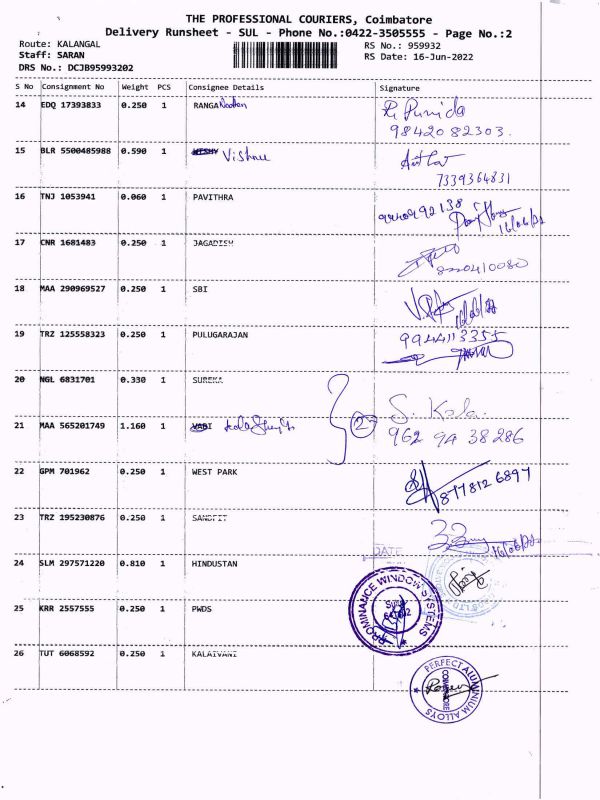 THE PROFESSIONAL COURIERS, Coimbatore
Delivery Runsheet - SUL - Phone No.:0422-3505555 - Page No.:2
Route: KALANGAL
RS No.: 959932
Staff: SARAN
RS Date: 16-Jun-2022
DRS No.: DCJB95993202
S No Consignment No Weight PCS Consignee Details Signature
14 EDQ 17393833 0.250 1 RANGA
98420 82303.
15 BLR 5500485988 0.590 1 Vishnu
7339364831
16 TNJ 1053941 0.060 1 PAVITHRA
16/06/22
17 CNR 1681483 0.250 1 JAGADISH
18 MAA 290969527 0.250 1 SBI
16/06/22
19 TRZ 125558323 0.250 1 PULUGARAJAN
9944113355
20 NGL 6831701 0.330 1 SUREKA
S. Kala.
21 MAA 565201749 1.160 1 VABI
2
962 94 38 286
22 GPM 701962 0.250 1 WEST PARK
877812 6897
23 TRZ 195230876 0.250 1 SANDFIT
16/06/22
DATE
24 SLM 297571220 0.810 1 HINDUSTAN
25 KRR 2557555 0.250 1 PWDS
PROMINANCE WINDOW SYSTEMS
26 TUT 6068592 0.250 1 KALAIVANI
PERFECT ALUMINIUM ALLOYS
COIMBATORE